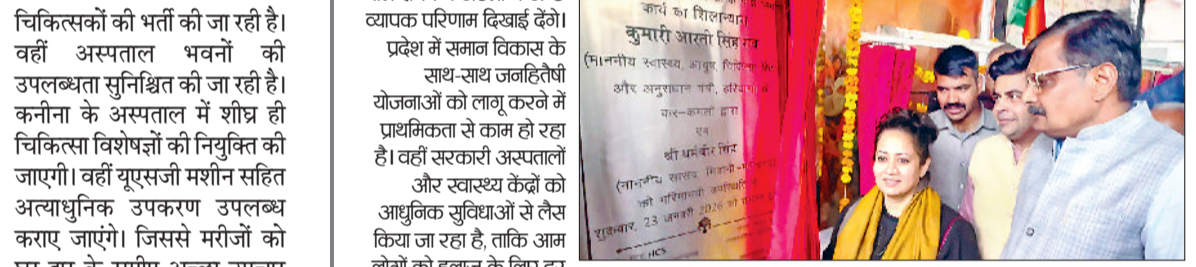 चिकित्सकों की भर्ती की जा रही है।
वहीं अस्पताल भवनों की
उपलब्धता सुनिश्चित की जा रही है।
कनीना के अस्पताल में शीघ्र ही
चिकित्सा विशेषज्ञों की नियुक्ति की
जाएगी। वहीं यूएसजी मशीन सहित
अत्याधुनिक उपकरण उपलब्ध
कराए जाएंगे। जिससे मरीजों को
व्यापक परिणाम दिखाई देंगे।
प्रदेश में समान विकास के
साथ-साथ जनहितैषी
योजनाओं को लागू करने में
प्राथमिकता से काम हो रहा
है। वहीं सरकारी अस्पतालों
और स्वास्थ्य केंद्रों को
आधुनिक सुविधाओं से लैस
किया जा रहा है, ताकि आम
लोगों को इलाज के लिए दूर
कार्य का शिलान्यास
कुमारी आरती सिंह राव
(माननीय स्वास्थ्य, आयुष,
और अनुसंधान मंत्री,
कर-कमलों द्वारा
एवं
श्री धर्मबीर सिंह
(माननीय सांसद, भिवानी-
की गरिमामयी
शुक्रवार, 23 जनवरी 2026 को
HCS